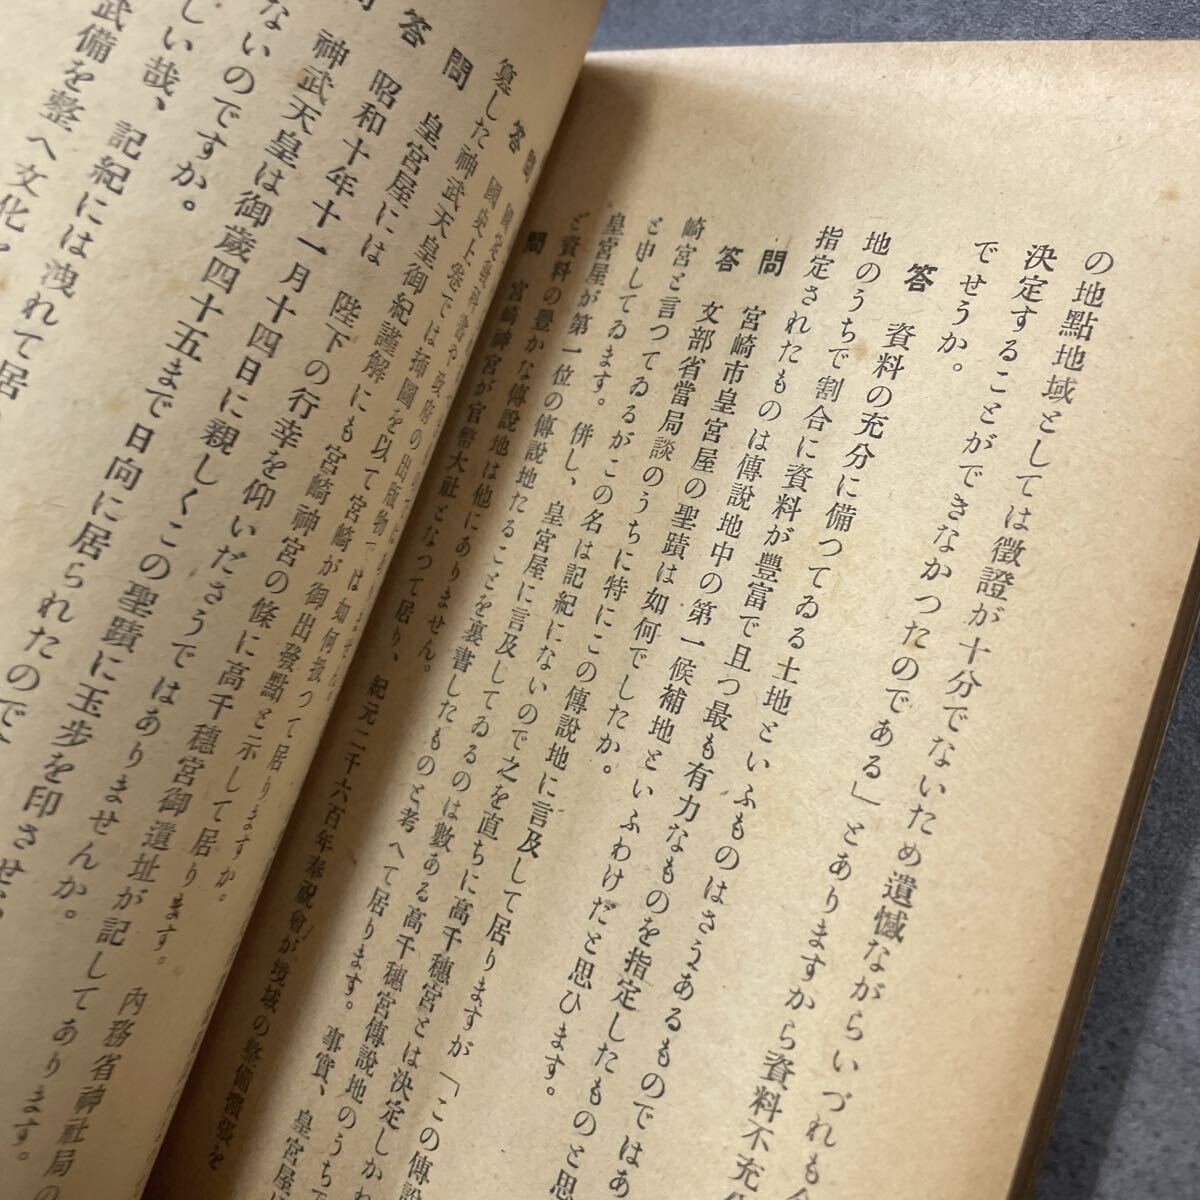 の地點地域としては徵證が十分でないため遺憾ながらいづれも
決定することができなかつたのである」とありますから資料不充
でせうか。
答 資料の充分に備つてゐる土地といふものはさうあるものではあ
地のうちで割合に資料が豐富で且つ最も有力なものを指定したものと思
指定されたものは傳說地中の第一候補地といふわけだと思ひます。
問 宮崎市皇宮屋の聖蹟は如何でしたか。
答 文部省當局談のうちに特にこの傳說地に言及して居りますが「この傳說
崎宮と言つてゐるがこの名は記紀にないので之を直ちに高千穗宮とは決定しか
と申してゐます。併し、皇宮屋に言及してゐるのは數ある高千穗宮傳說地のうちで
皇宮屋が第一位の傳說地たることを裏書したものと考へて居ります。事實、皇宮屋
ど資料の豐かな傳說地は他にありません。
問 宮崎神宮が官幣大社となつて居り、紀元二千六百年奉祝會が境域の整備擴張を
は如何扱つて居りますか。
答
篡した神武天皇御紀謹解にも宮崎神宮の條に高千穗宮御遺址が記してあります。
國史上卷では揷圖を以て宮崎が御出發點と示して居ります。內務省神社局の
問 皇宮屋には 陛下の行幸を仰いださうではありませんか。
答 昭和十年十一月十四日に親しくこの聖蹟に玉步を印させ
問 神武天皇は御歲四十五まで日向に居られたので
ないのですか。
しい哉、記紀には洩れて居
武備を整へ文化